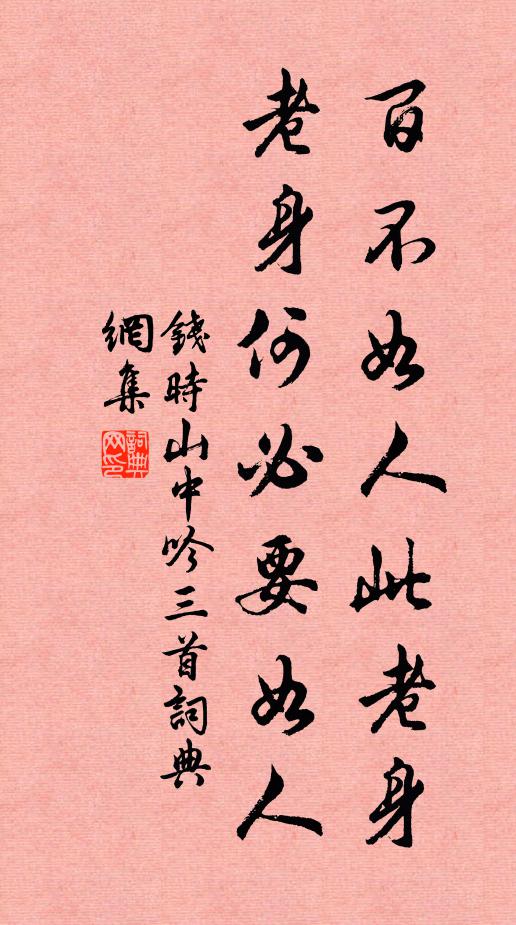 百不如人此老身
老身何必要如人
錢時山中吟三首詞典
網集
詞典
网印